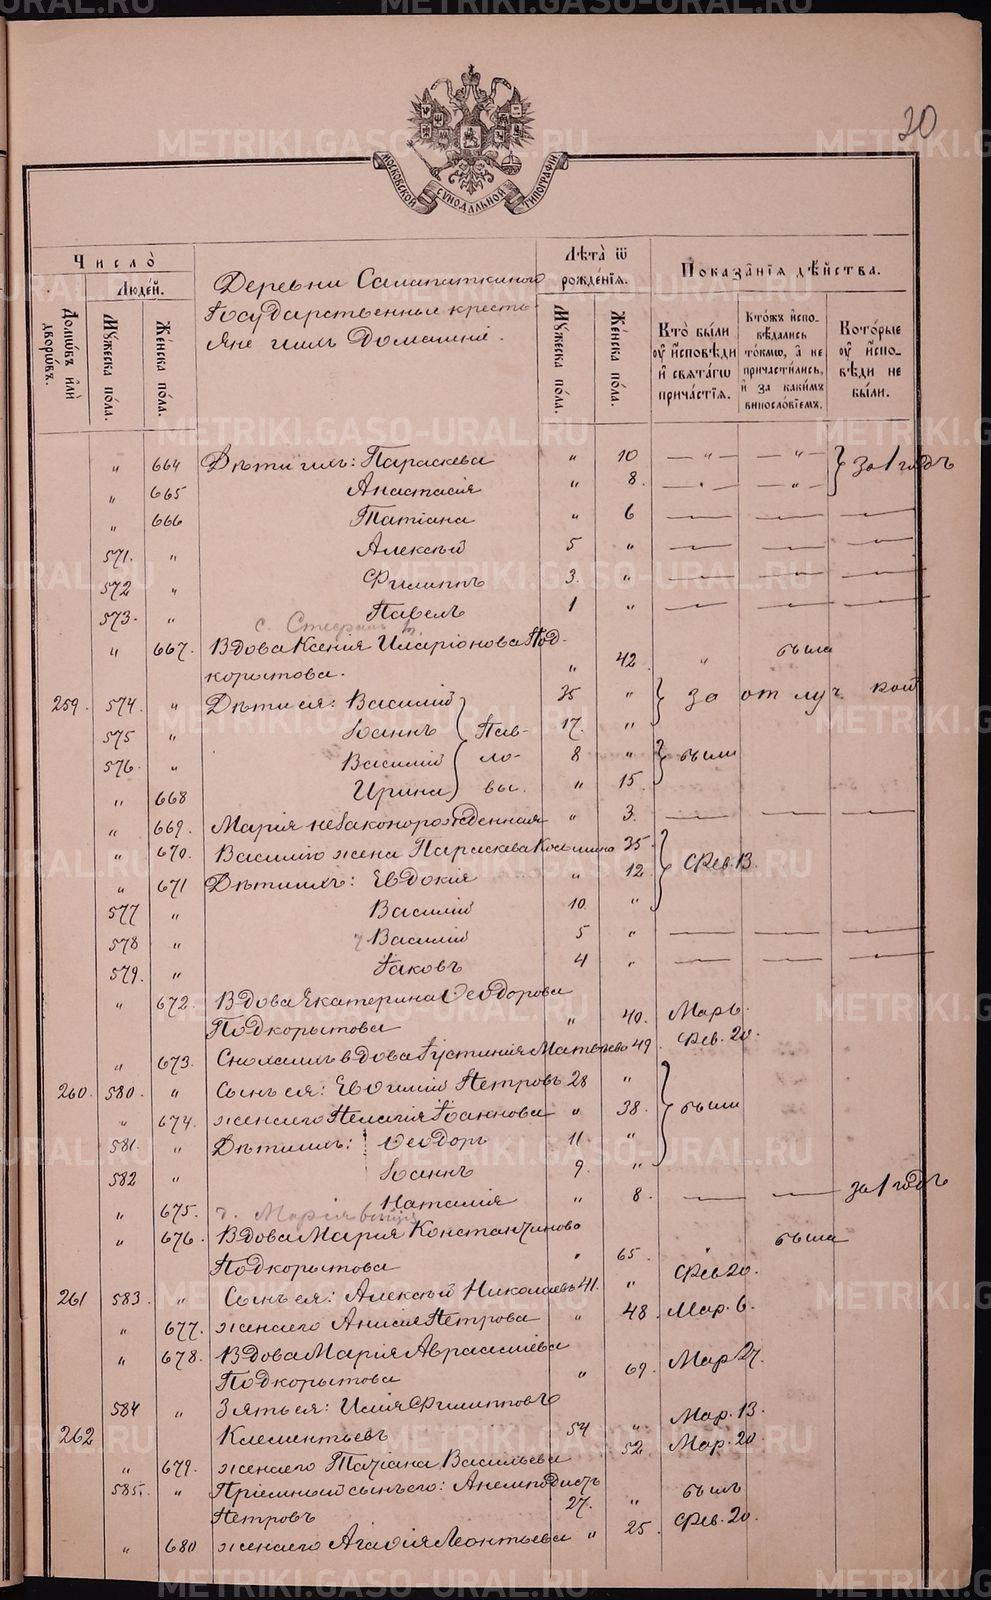 METRIKI.GASO-URAL.RU
20
МОСКОВСКОЙ СѴНОДАЛЬНОЙ ТИПОГРАФІИ
Число̀
Людéй.
Домѡ́въ и҆лѝ дворѡ́въ.
Мꙋ́жеска по́ла.
Же́нска по́ла.
Деревни Салапаткиной
Государственные кресть-
яне и ихъ Домашніе.
Лѣ́та ѿ рожде́нїѧ.
Мꙋ́жеска по́ла.
Же́нска по́ла.
Показа̑нїѧ дѣ́йства.
Кто̀ бы́ли ᲂу҆ и҆сповѣ́ди и҆ свѧта́гѡ прича́стїѧ.
Кто́жъ и҆спо-вѣ́дались то́кмѡ, а҆ не причасти́лись, и҆ за каки́мъ винословїемъ.
Кото́рые ᲂу҆ и҆спо-вѣ́ди не бы́ли.
" 664 Дѣти ихъ: Параскева " 10 — " — — " — за 1 годъ
" 665 Анастасія " 8 — " — — " —
" 666 Татіана " 6 — — —
571. " Алексѣй 5 " — — —
572 " Филиппъ 3. " — — —
573. " Павелъ 1 " — — —
" 667. Вдова Ксенія Иларіонова Под-
корытова. " 42 " была
259. 574. " Дѣти ея: Василій 35 " за отлуч кой
575 " Іоаннъ Пав- 17. "
576. " Василій ло- 8 " были
" 668 Ирина вы. " 15
" 669. Марія незаконорожденная " 3. — — —
" 670. Василія жена Параскева Косьмина 35
" 671 Дѣти ихъ: Евдокія " 12 Фев. 13.
577 " Василій 10 "
578 " Василій 5 " — — —
579. " Іаковъ 4 " — — —
" 672. Вдова Екатерина Ѳеодорова
Подкорытова " 40. Мар 6.
" 673. Сноха ихъ вдова Іустинія Матѳеева 49. Фев. 20.
260. 580. " Сынъ ея: Евѳимій Петровъ 28 "
" 674. жена его Пелагія Іоаннова " 38. были
581. " Дѣти ихъ: Ѳеодоръ 11 "
582 " Іоаннъ 9. "
" 675. Наталія " 8. — — за 1 годъ
" 676. Вдова Марія Константинова
Подкорытова " 65. " была
261 583. " Сынъ ея: Алексѣй Николаевъ 41. " Фев 20.
" 677. жена его Анисія Петрова " 48. Мар. 6.
" 678. Вдова Марія Авраамíева
Подкорытова " 69. Мар 27.
584 " Зять ея: Илія Филипповъ
262 Клементьевъ 54 " Мар. 13.
" 679. жена его Татіана Васильева 52 Мар. 20.
585. " Пріемный сынъ его: Анемподистъ
Петровъ 27. " былъ
" 680 жена его Агаѳія Леонтьева " 25. Фев. 20.